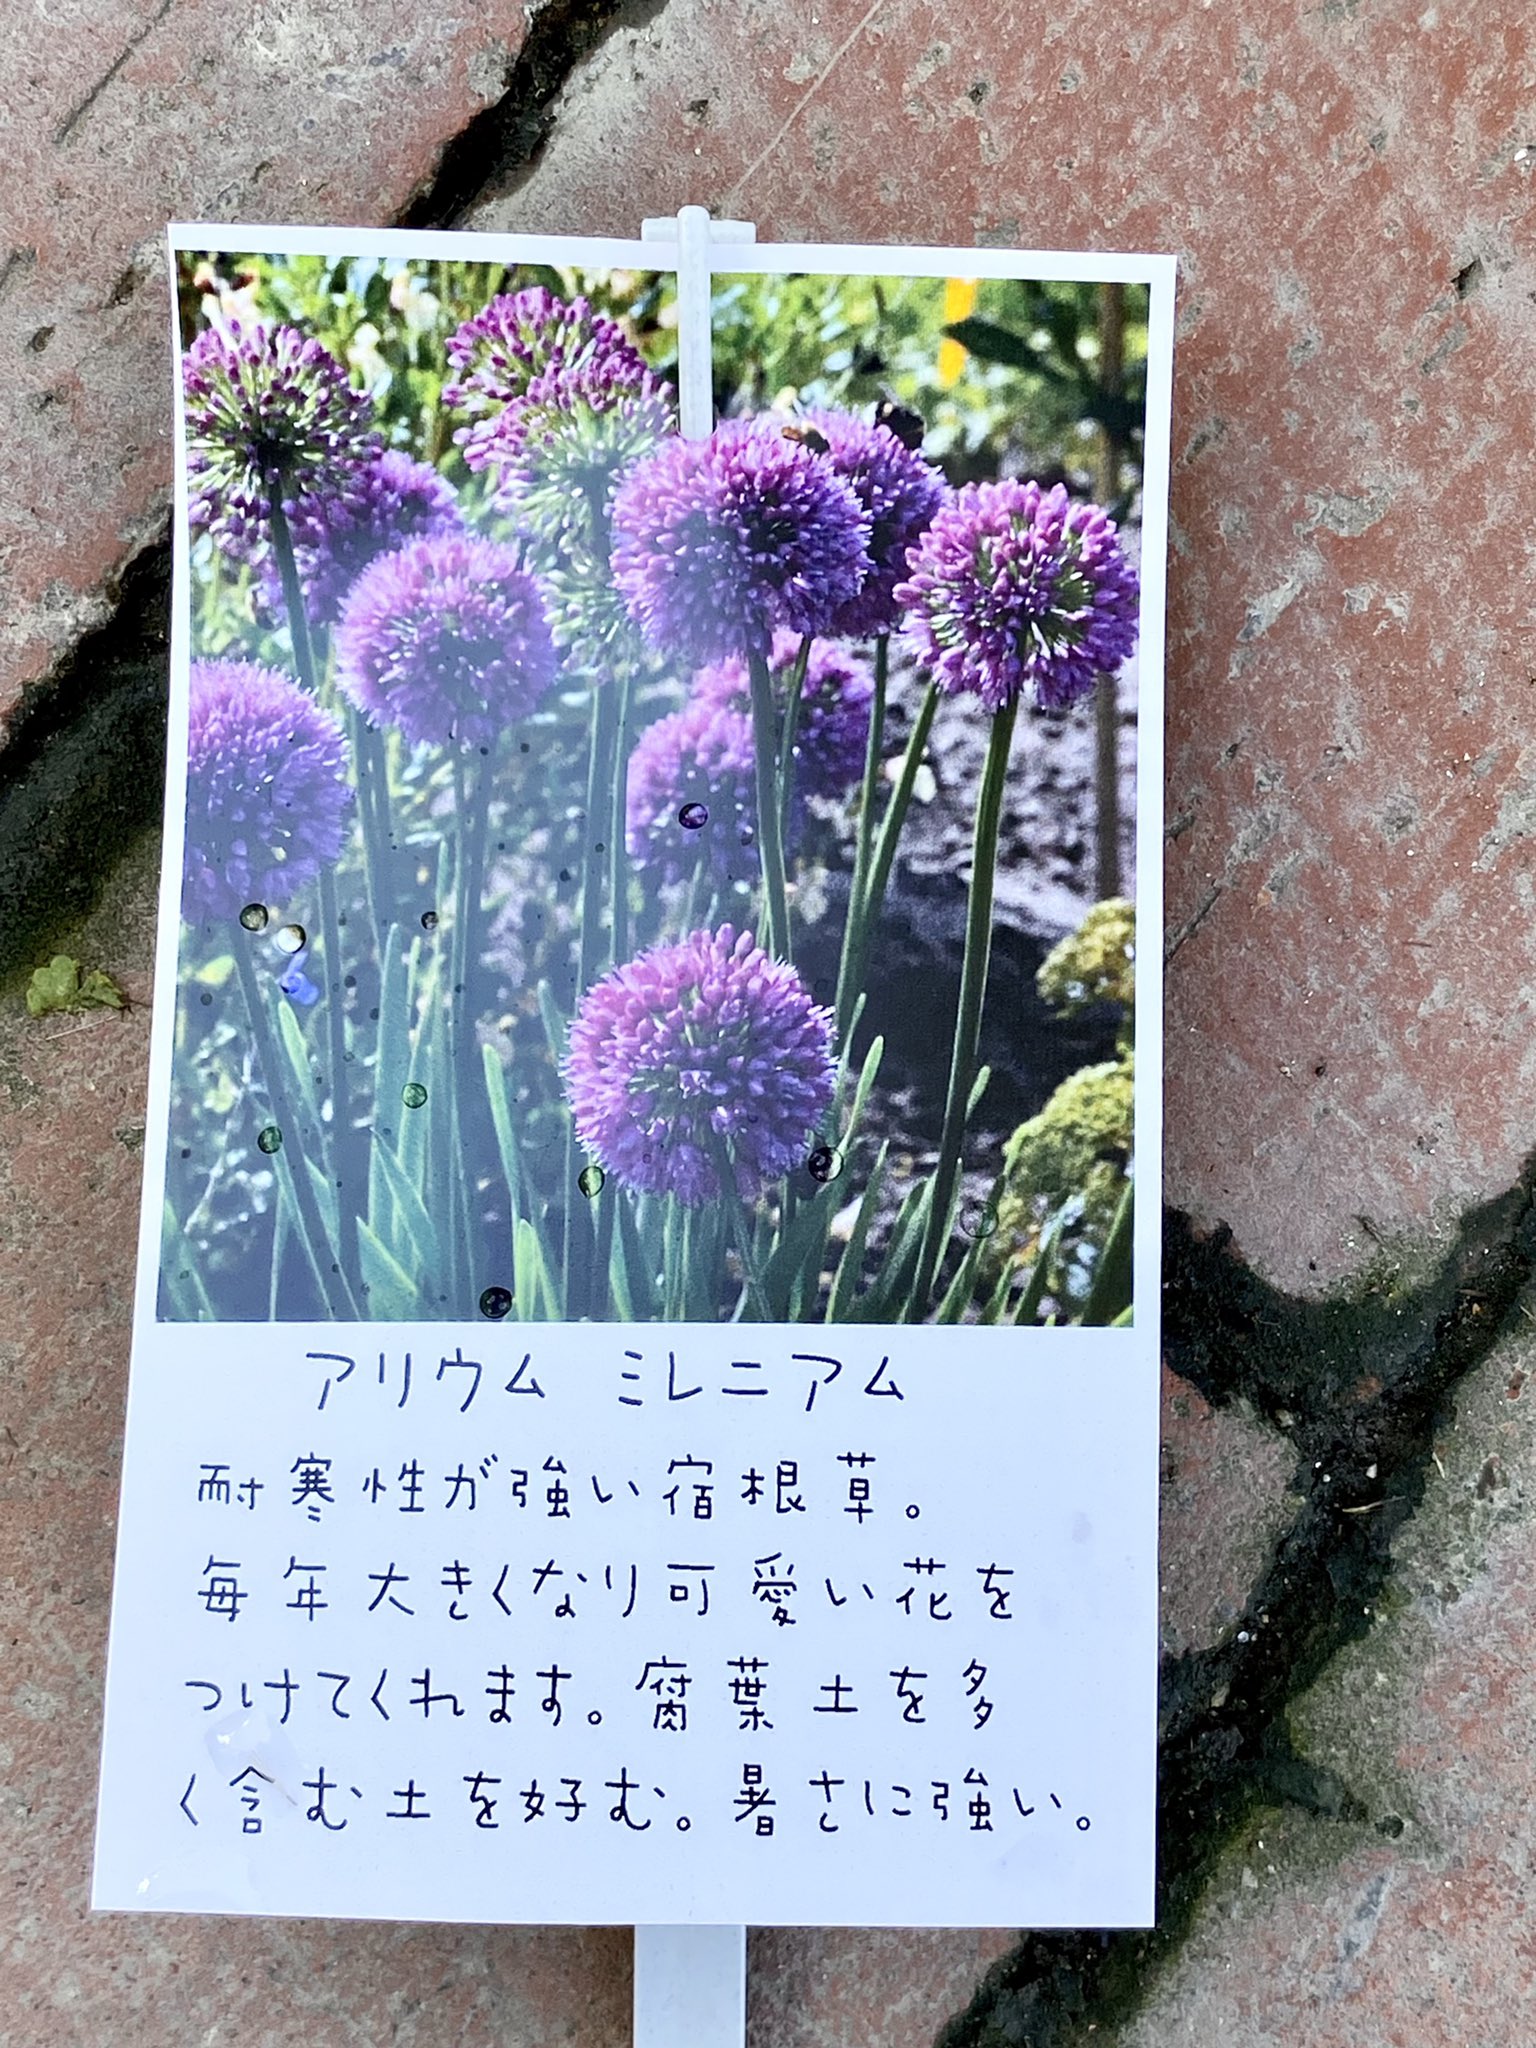 アリウム ミレニアム
耐寒性が強い宿根草。
毎年大きくなり可愛い花を
つけてくれます。腐葉土を多
く含む土を好む。暑さに強い。